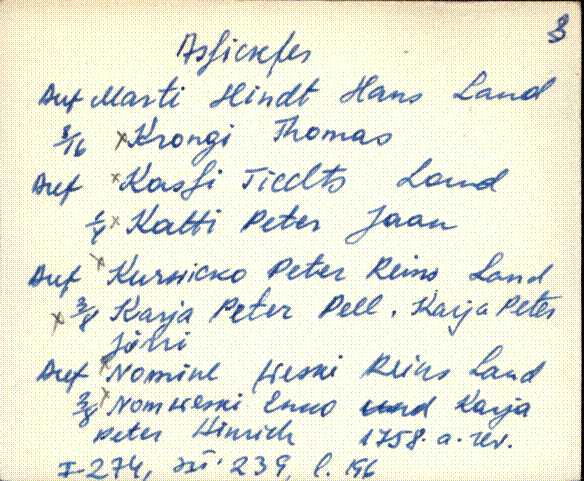 3
Asficksfer
Auf Marti Hindt Hans Land
3/16 × Krongi Thomas
Auf × Kasfi Tieelts Land
1/4 × Katti Peter Jaan
Auf × Kurwicko Peter Reins Land
× 3/8 Karja Peter Pell. Karja Peter
Jühri
Auf × Nomine Weski Reins Land
3/8 × Nomweski Enno und Karja
Peter Hinrich 1758. a. rev.
I-274, 239, l. 196